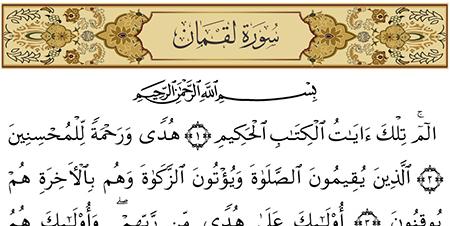 سُورَةُ لُقْمَانَ
بِسْمِ ٱللَّهِ ٱلرَّحْمَٰنِ ٱلرَّحِيمِ
الٓمٓ ۝ تِلْكَ ءَايَٰتُ ٱلْكِتَٰبِ ٱلْحَكِيمِ ۝١ هُدًى وَرَحْمَةً لِّلْمُحْسِنِينَ
۝٢ ٱلَّذِينَ يُقِيمُونَ ٱلصَّلَوٰةَ وَيُؤْتُونَ ٱلزَّكَوٰةَ وَهُم بِٱلْأَخِرَةِ هُمْ
يُوقِنُونَ ۝٣ أُو۟لَٰٓئِكَ عَلَىٰ هُدًى مِّن رَّبِّهِمْ ۖ وَأُو۟لَٰٓئِكَ هُمُ